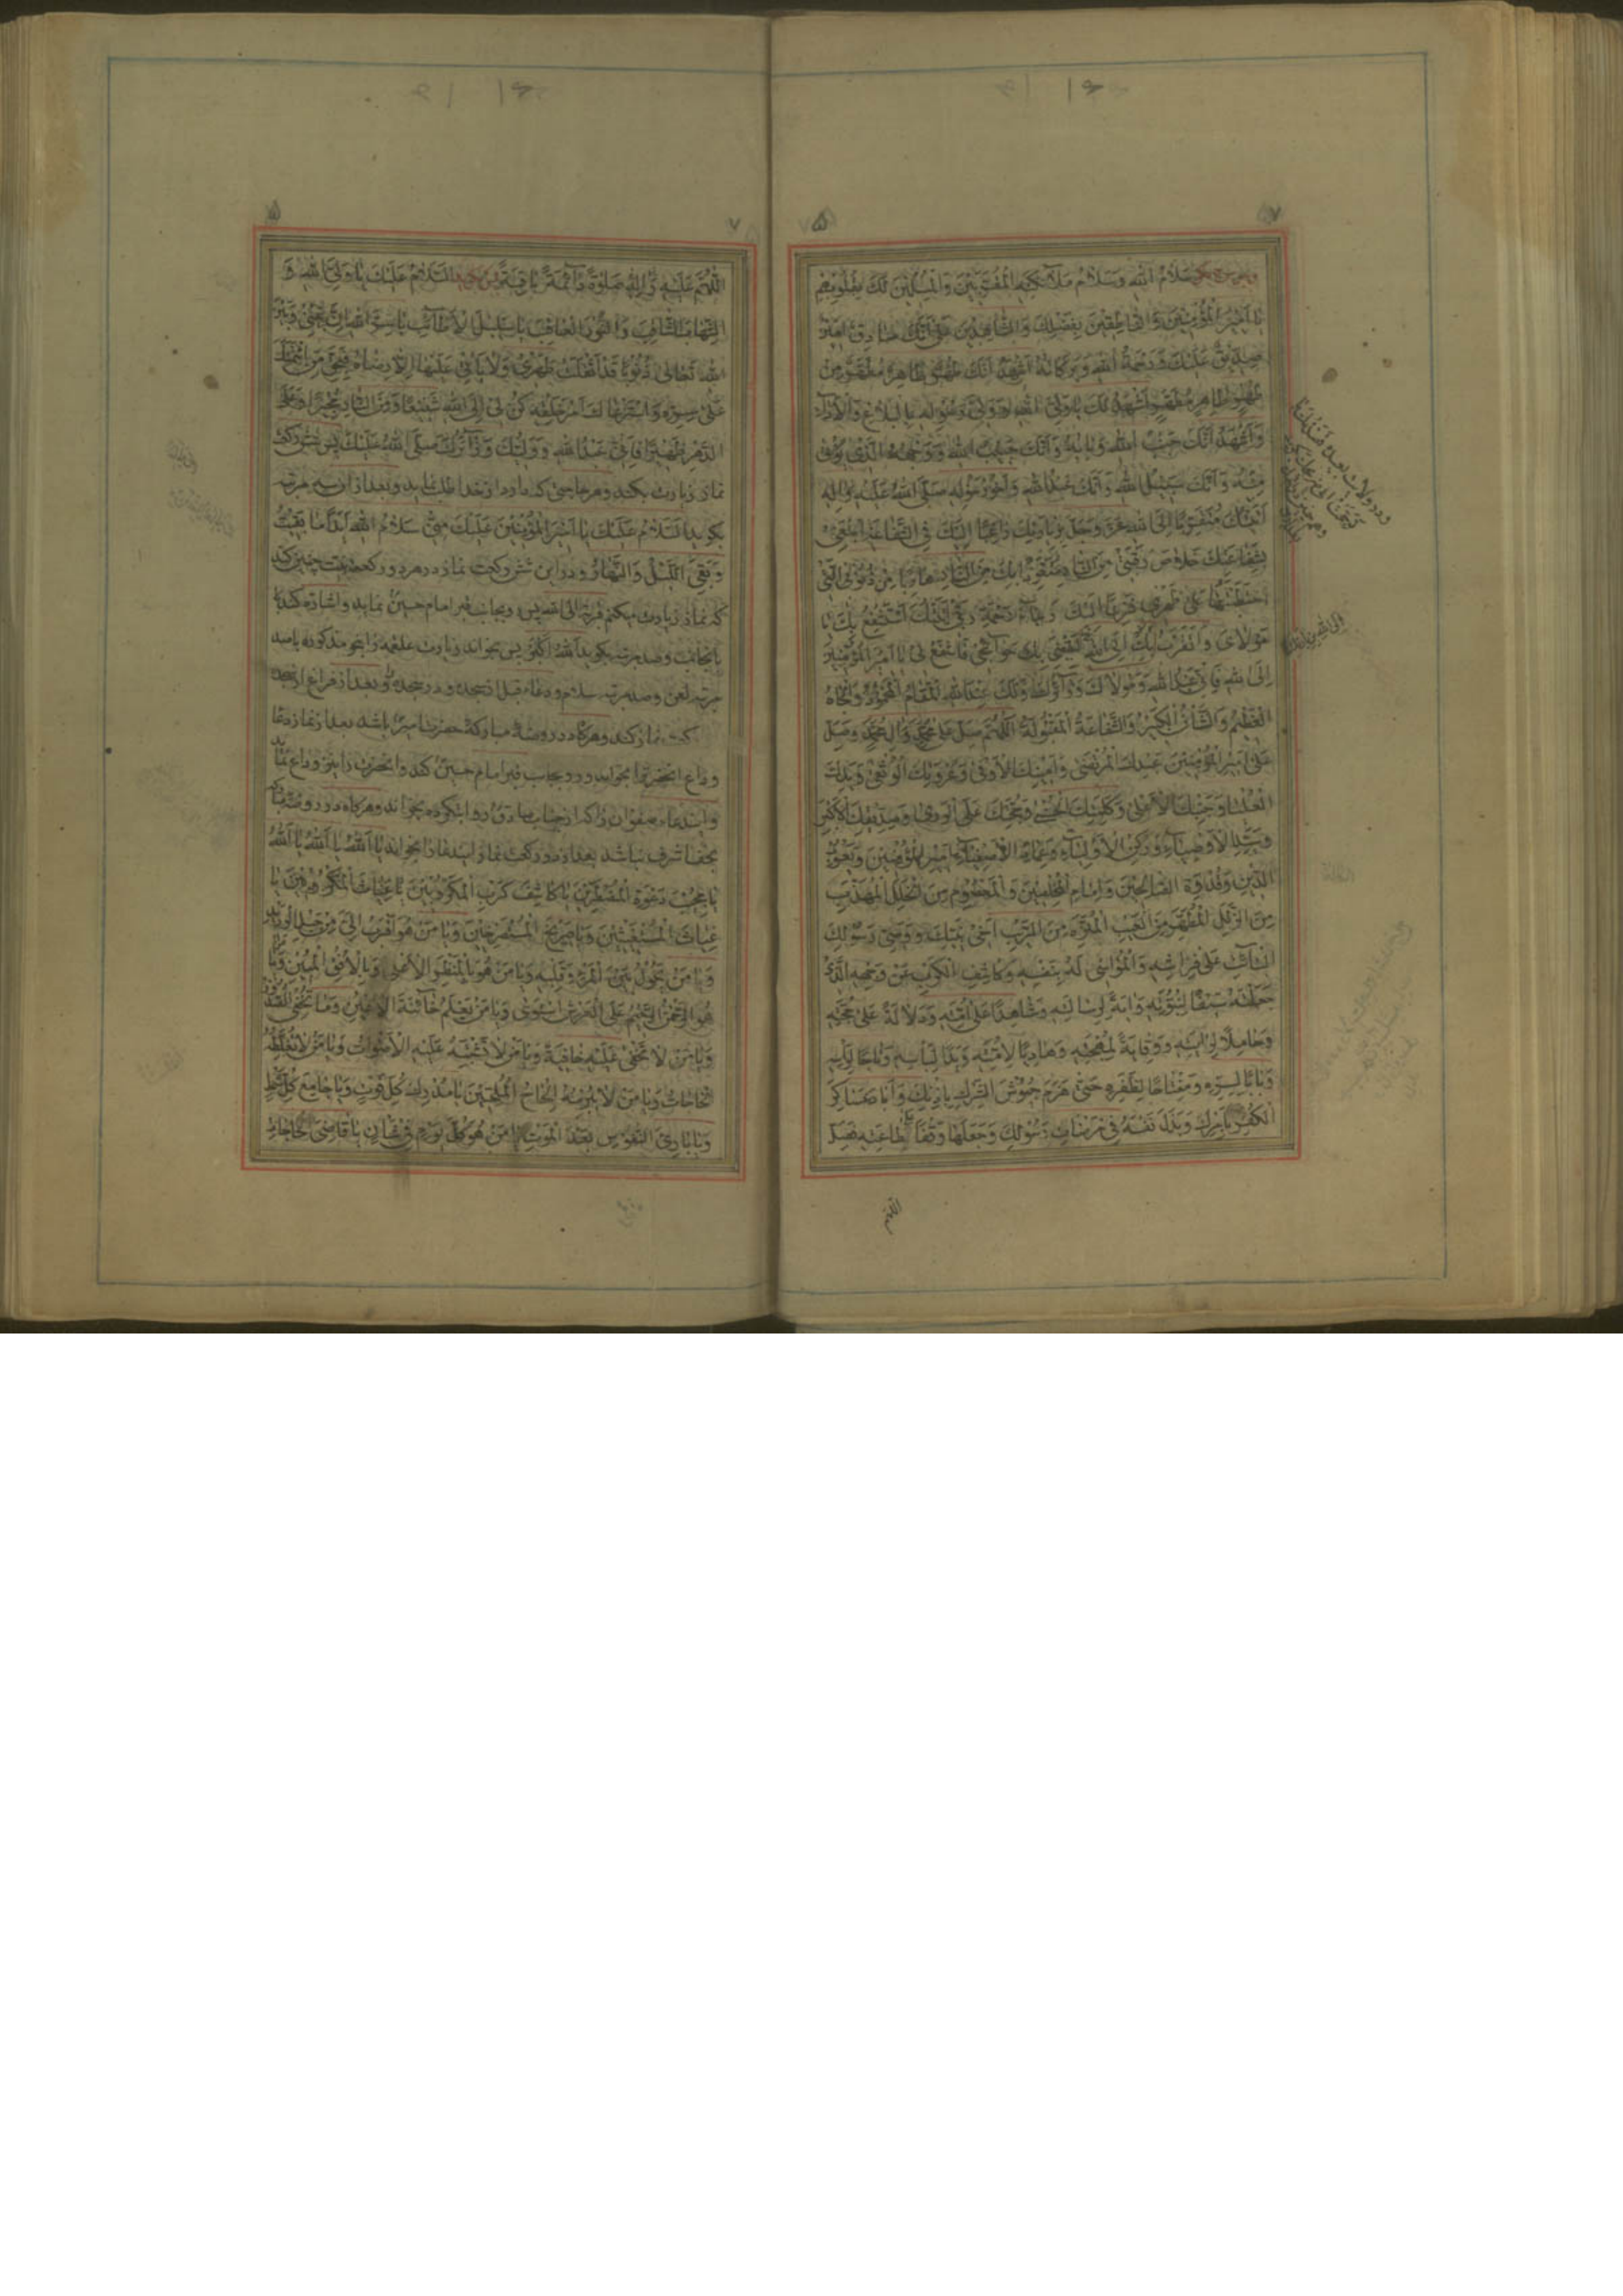 سَلَامُ اللهِ وَسَلَامُ مَلَآئِكَتِهِ الْمُقَرَّبِيْنَ وَالْمُسَلِّمِيْنَ لَكَ بِقُلُوبِهِمْ
يَا اَمِيْرَ الْمُؤْمِنِيْنَ وَالنَّاطِقِيْنَ بِفَضْلِكَ وَالشَّاهِدِيْنَ عَلٰى اَنَّكَ صَادِقٌ اَمِيْنٌ
صِدِّيْقٌ عَلَيْكَ وَرَحْمَةُ اللهِ وَبَرَكَاتُهُ اَشْهَدُ اَنَّكَ طُهْرٌ طَاهِرٌ مُطَهَّرٌ مِنْ
طُهْرٍ طَاهِرٍ مُطَهَّرٍ اَشْهَدُ لَكَ يَا وَلِىَّ اللهِ وَوَلِىَّ رَسُوْلِهِ بِالْبَلَاغِ وَالْاَدَآءِ
وَاَشْهَدُ اَنَّكَ جَنْبُ اللهِ وَبَابُهُ وَاَنَّكَ حَبِيْبُ اللهِ وَوَجْهُهُ الَّذِىْ يُؤْتٰى
مِنْهُ وَاَنَّكَ سَبِيْلُ اللهِ وَاَنَّكَ عَبْدُ اللهِ وَاَخُوْ رَسُوْلِهِ صَلَّى اللهُ عَلَيْهِ وَاٰلِهِ
اَتَيْتُكَ مُتَقَرِّبًا اِلَى اللهِ عَزَّ وَجَلَّ بِزِيَارَتِكَ رَاغِبًا اِلَيْكَ فِى الشَّفَاعَةِ اَبْتَغِىْ
بِشَفَاعَتِكَ خَلَاصَ رَقَبَتِىْ مِنَ النَّارِ مُتَعَوِّذًا بِكَ مِنَ النَّارِ هَارِبًا مِنْ ذُنُوْبِىَ الَّتِىْ
احْتَطَبْتُهَا عَلٰى ظَهْرِىْ فَزِعًا اِلَيْكَ رَجَآءَ رَحْمَةِ رَبِّىْ اَتَيْتُكَ اَسْتَشْفِعُ بِكَ يَا
مَوْلَاىَ وَاَتَقَرَّبُ بِكَ اِلَى اللهِ لِيَقْضِىَ بِكَ حَوَآئِجِىْ فَاشْفَعْ لِىْ يَا اَمِيْرَ الْمُؤْمِنِيْنَ
اِلَى اللهِ فَاِنِّىْ عَبْدُ اللهِ وَمَوْلَاكَ وَزَآئِرُكَ وَلَكَ عِنْدَ اللهِ الْمَقَامُ الْمَحْمُوْدُ وَالْجَاهُ
الْعَظِيْمُ وَالشَّأْنُ الْكَبِيْرُ وَالشَّفَاعَةُ الْمَقْبُوْلَةُ اَللّٰهُمَّ صَلِّ عَلٰى مُحَمَّدٍ وَاٰلِ مُحَمَّدٍ وَصَلِّ
عَلٰى اَمِيْرِ الْمُؤْمِنِيْنَ عَبْدِكَ الْمُرْتَضٰى وَاَمِيْنِكَ الْاَوْفٰى وَعُرْوَتِكَ الْوُثْقٰى وَيَدِكَ
الْعُلْيَا وَجَنْبِكَ الْاَعْلٰى وَكَلِمَتِكَ الْحُسْنٰى وَحُجَّتِكَ عَلَى الْوَرٰى وَصِدِّيْقِكَ الْاَكْبَرِ
وَسَيِّدِ الْاَوْصِيَآءِ وَرُكْنِ الْاَوْلِيَآءِ وَعِمَادِ الْاَصْفِيَآءِ اَمِيْرِ الْمُؤْمِنِيْنَ وَيَعْسُوْبِ
الدِّيْنِ وَقُدْوَةِ الصَّالِحِيْنَ وَاِمَامِ الْمُخْلِصِيْنَ وَالْمَعْصُوْمِ مِنَ الْخَلَلِ الْمُهَذَّبِ
مِنَ الزَّلَلِ الْمُطَهَّرِ مِنَ الْعَيْبِ الْمُنَزَّهِ مِنَ الرَّيْبِ اَخِىْ نَبِيِّكَ وَوَصِىِّ رَسُوْلِكَ
الْبَآئِتِ عَلٰى فِرَاشِهِ وَالْمُوَاسِىْ لَهُ بِنَفْسِهِ وَكَاشِفِ الْكَرْبِ عَنْ وَجْهِهِ الَّذِىْ
جَعَلْتَهُ سَيْفًا لِنُبُوَّتِهِ وَاٰيَةً لِرِسَالَتِهِ وَشَاهِدًا عَلٰى اُمَّتِهِ وَدَلَالَةً عَلٰى حُجَّتِهِ
وَحَامِلًا لِرَايَتِهِ وَوِقَايَةً لِمُهْجَتِهِ وَهَادِيًا لِاُمَّتِهِ وَيَدًا لِبَأْسِهِ وَتَاجًا لِرَأْسِهِ
وَبَابًا لِسِرِّهِ وَمِفْتَاحًا لِظَفَرِهِ حَتّٰى هَزَمَ جُيُوْشَ الشِّرْكِ بِاِذْنِكَ وَاَبَادَ عَسَاكِرَ
الْكُفْرِ بِاَمْرِكَ وَبَذَلَ نَفْسَهُ فِىْ مَرْضَاتِ رَسُوْلِكَ وَجَعَلَهَا وَقْفًا عَلٰى طَاعَتِهِ فَصَلِّ
اللّهم
اَللّٰهُمَّ عَلَيْهِ وَاٰلِهِ صَلٰوةً دَآئِمَةً بَاقِيَةً پس بگويد اَلسَّلَامُ عَلَيْكَ يَا وَلِىَّ اللهِ وَ
الشِّهَابَ الثَّاقِبَ وَالنُّوْرَ الْعَاقِبَ يَا سَلِيْلَ الْاَطَآئِبِ يَا سِرَّ اللهِ اِنَّ بَيْنِىْ وَبَيْنَ
اللهِ تَعَالٰى ذُنُوْبًا قَدْ اَثْقَلَتْ ظَهْرِىْ وَلَا يَأْتِىْ عَلَيْهَا اِلَّا رِضَاهُ فَبِحَقِّ مَنِ ائْتَمَنَكَ
عَلٰى سِرِّهِ وَاسْتَرْعَاكَ اَمْرَ خَلْقِهِ كُنْ لِىْ اِلَى اللهِ شَفِيْعًا وَمِنَ النَّارِ مُجِيْرًا وَعَلَى
الدَّهْرِ ظَهِيْرًا فَاِنِّىْ عَبْدُ اللهِ وَوَلِيُّكَ وَزَآئِرُكَ صَلَّى اللهُ عَلَيْكَ پس شش ركعت
نماز زيارت بكند و هر حاجتى كه دارد از خدا طلب نمايد و بعد از آن سه مرتبه
بگويد اَلسَّلَامُ عَلَيْكَ يَا اَمِيْرَ الْمُؤْمِنِيْنَ عَلَيْكَ مِنِّىْ سَلَامُ اللهِ اَبَدًا مَا بَقِيْتُ
وَبَقِىَ اللَّيْلُ وَالنَّهَارُ و در اين شش ركعت نماز در هر دو ركعت نيت چنين كند
كه نماز زيارت ميكنم قربة الى الله پس و بجانب قبر امام حسينؑ نمايد و اشاره كند
بآنجانب و صد مرتبه بگويد اَللهُ اَكْبَرُ پس بخواند زيارت علقمه را بنحو مذكوره با صد
مرتبه لعن و صد مرتبه سلام و دعاء قبل از سجده و در سجده و بعد از فراغ از سجده
ركعت نماز كند و هرگاه در روضۀ مباركۀ حضرت اميرؑ باشد بعد از نماز دعا
وداع آنحضرت را بخواند و رو بجانب قبر امام حسينؑ كند و آنحضرت را نيز وداع نمايد
و ايندعاء صفوان را كه از جناب صادقؑ روايتكرده بخواند و هرگاه در روضۀ مباركه
نجف اشرف نباشد بعد از دو ركعت نماز ايندعا را بخواند يَا اَللهُ يَا اَللهُ يَا اَللهُ
يَا مُجِيْبَ دَعْوَةِ الْمُضْطَرِّيْنَ يَا كَاشِفَ كُرَبِ الْمَكْرُوْبِيْنَ يَا غِيَاثَ الْمَكْرُوْبِيْنَ يَا
غِيَاثَ الْمُسْتَغِيْثِيْنَ وَيَا صَرِيْخَ الْمُسْتَصْرِخِيْنَ وَيَا مَنْ هُوَ اَقْرَبُ اِلَىَّ مِنْ حَبْلِ الْوَرِيْدِ
وَيَا مَنْ يَحُوْلُ بَيْنَ الْمَرْءِ وَقَلْبِهِ وَيَا مَنْ هُوَ بِالْمَنْظَرِ الْاَعْلٰى وَبِالْاُفُقِ الْمُبِيْنِ وَيَا مَنْ
هُوَ الرَّحْمٰنُ الرَّحِيْمُ عَلَى الْعَرْشِ اسْتَوٰى وَيَا مَنْ يَعْلَمُ خَآئِنَةَ الْاَعْيُنِ وَمَا تُخْفِى الصُّدُوْرُ
وَيَا مَنْ لَا تَخْفٰى عَلَيْهِ خَافِيَةٌ وَيَا مَنْ لَا تَشْتَبِهُ عَلَيْهِ الْاَصْوَاتُ وَيَا مَنْ لَا تُغَلِّطُهُ
الْحَاجَاتُ وَيَا مَنْ لَا يُبْرِمُهُ اِلْحَاحُ الْمُلِحِّيْنَ يَا مُدْرِكَ كُلِّ فَوْتٍ وَيَا جَامِعَ كُلِّ شَمْلٍ
وَيَا بَارِئَ النُّفُوْسِ بَعْدَ الْمَوْتِ يَا مَنْ هُوَ كُلَّ يَوْمٍ فِىْ شَأْنٍ يَا قَاضِىَ الْحَاجَاتِ